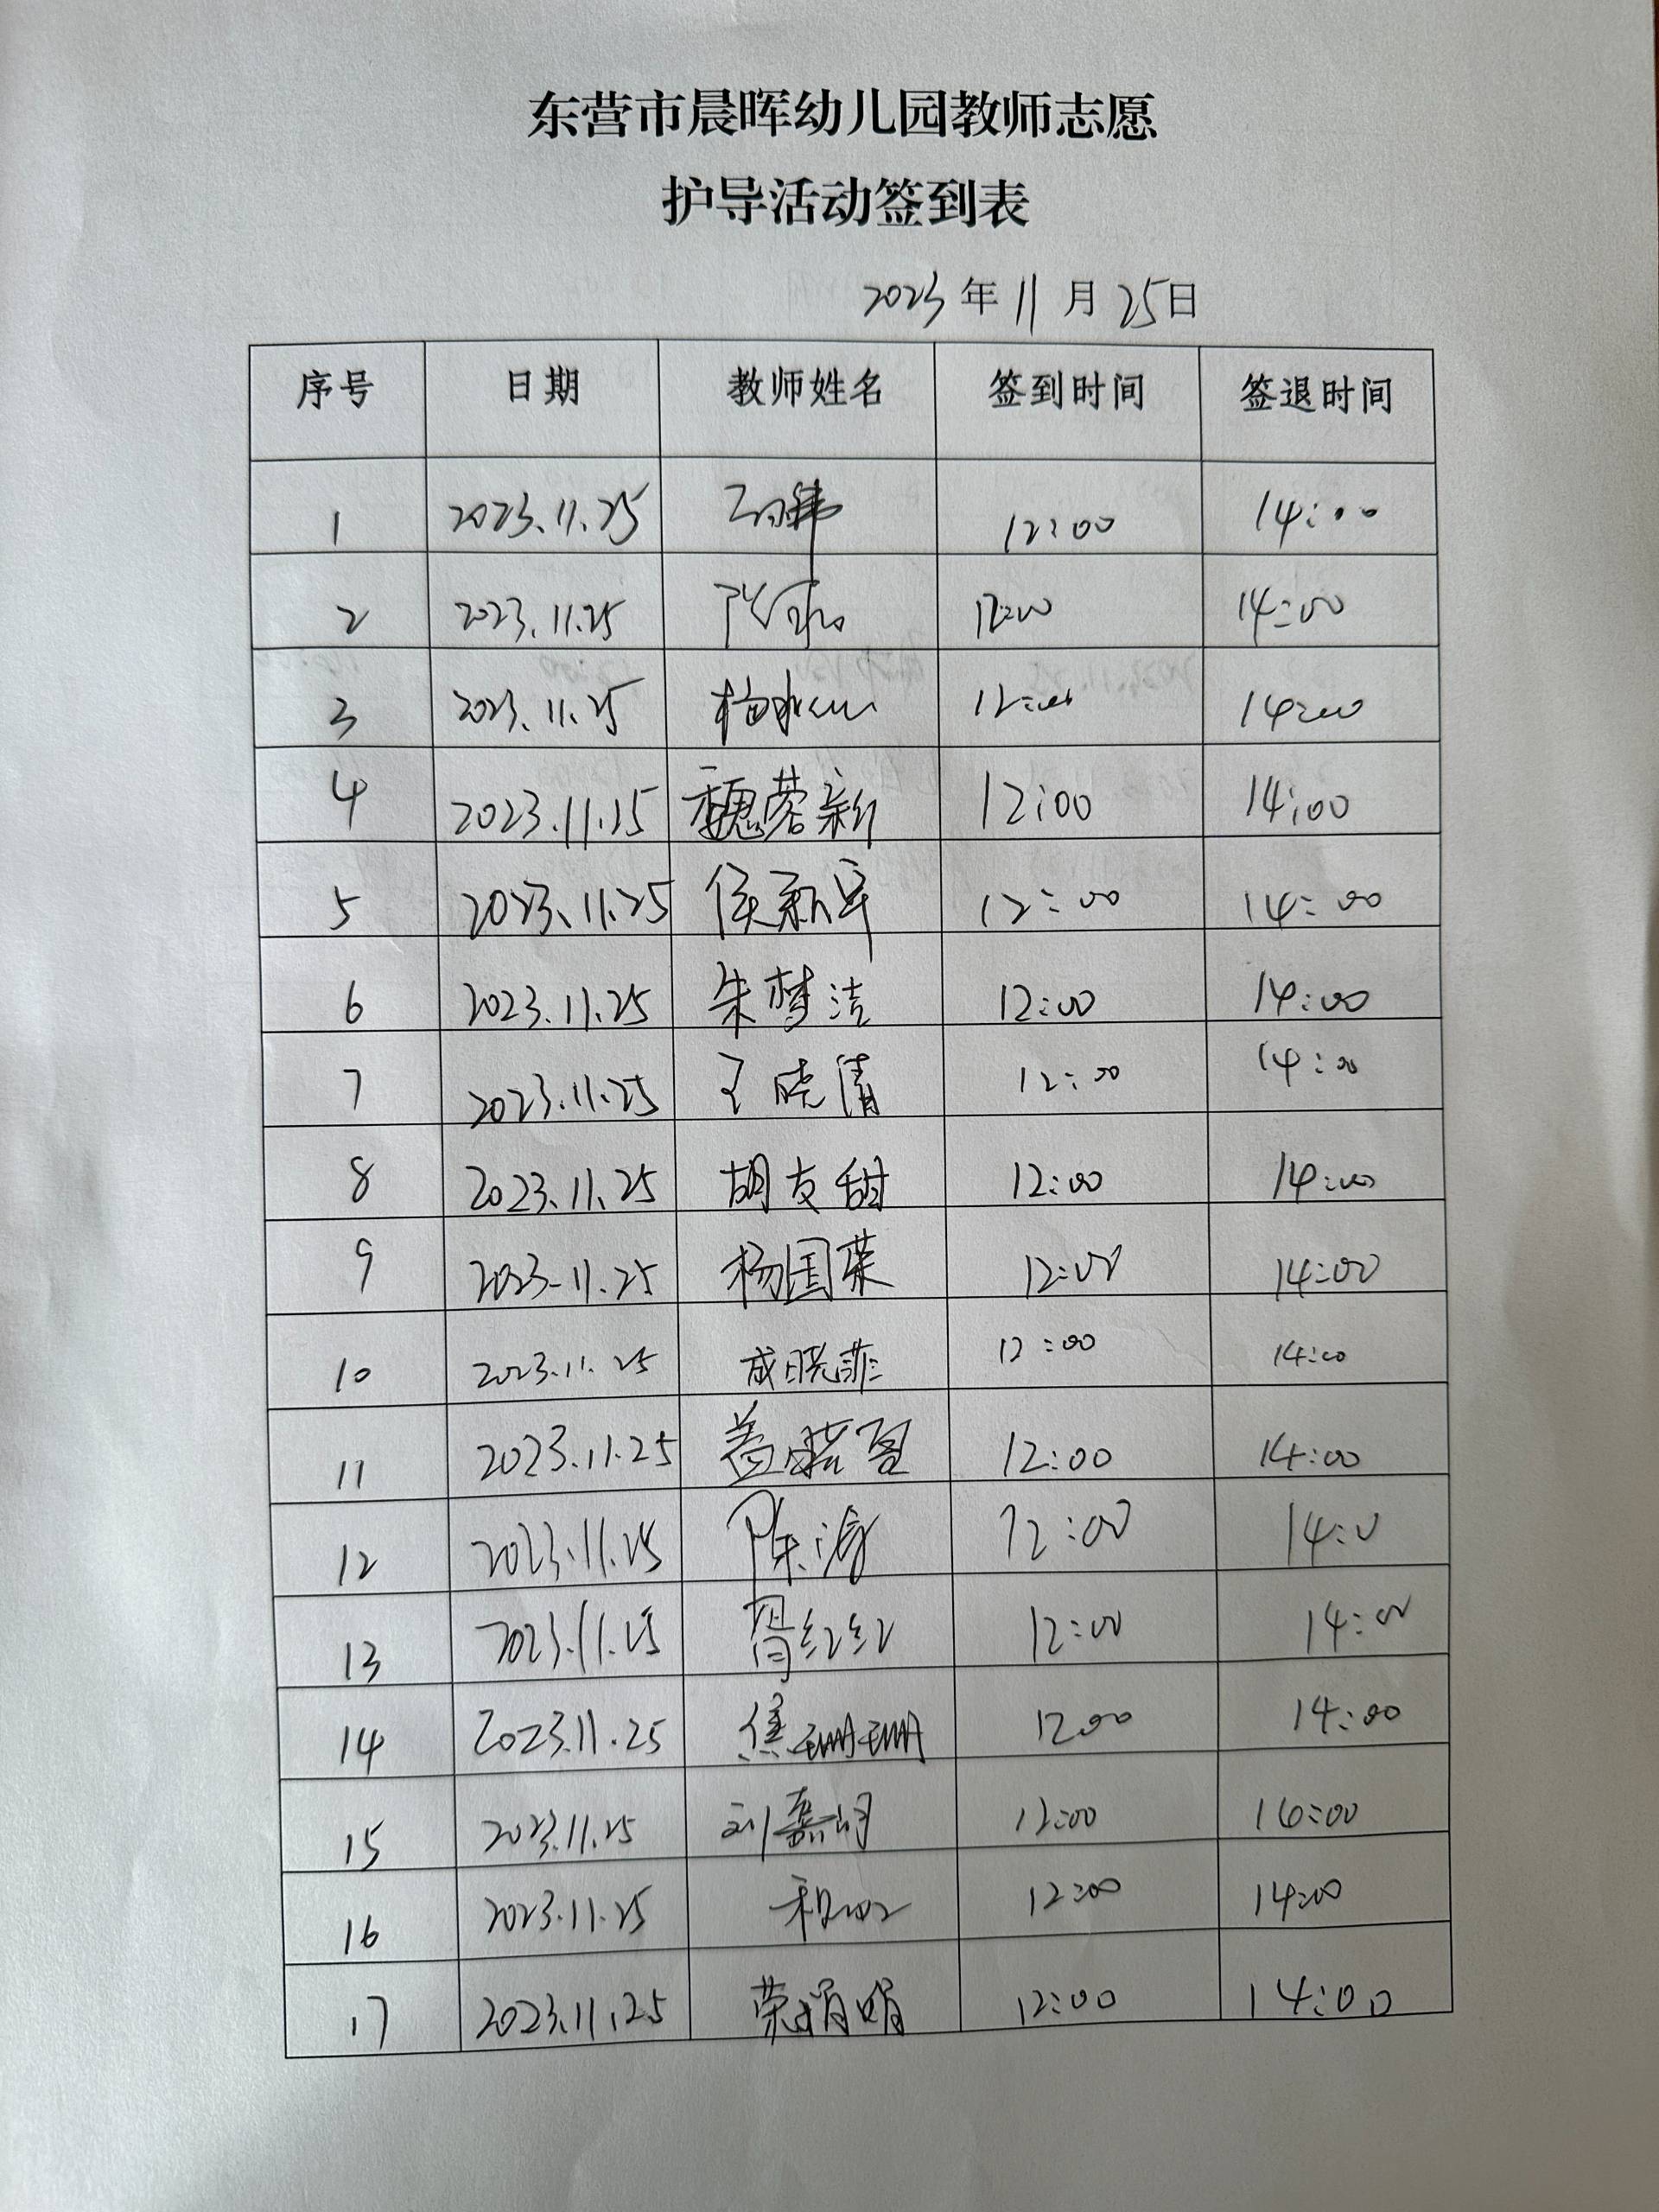 东营市晨晖幼儿园教师志愿
护导活动签到表
2023年11月25日
序号 日期 教师姓名 签到时间 签退时间
1 2023.11.25 12:00 14:00
2 2023.11.25 12:00 14:00
3 2023.11.25 12:00 14:00
4 2023.11.25 魏蓉新 12:00 14:00
5 2023.11.25 侯新军 12:00 14:00
6 2023.11.25 朱梦洁 12:00 14:00
7 2023.11.25 王晓倩 12:00 14:00
8 2023.11.25 胡友甜 12:00 14:00
9 2023.11.25 杨国荣 12:00 14:00
10 2023.11.25 成晓菲 12:00 14:00
11 2023.11.25 盖晓 12:00 14:00
12 2023.11.25 陈涛 12:00 14:0
13 2023.11.25 胥红红 12:00 14:00
14 2023.11.25 焦珊珊 1200 14:00
15 2023.11.25 刘 12:00 14:00
16 2023.11.25 12:00 14:00
17 2023.11.25 荣娟娟 12:00 14:00